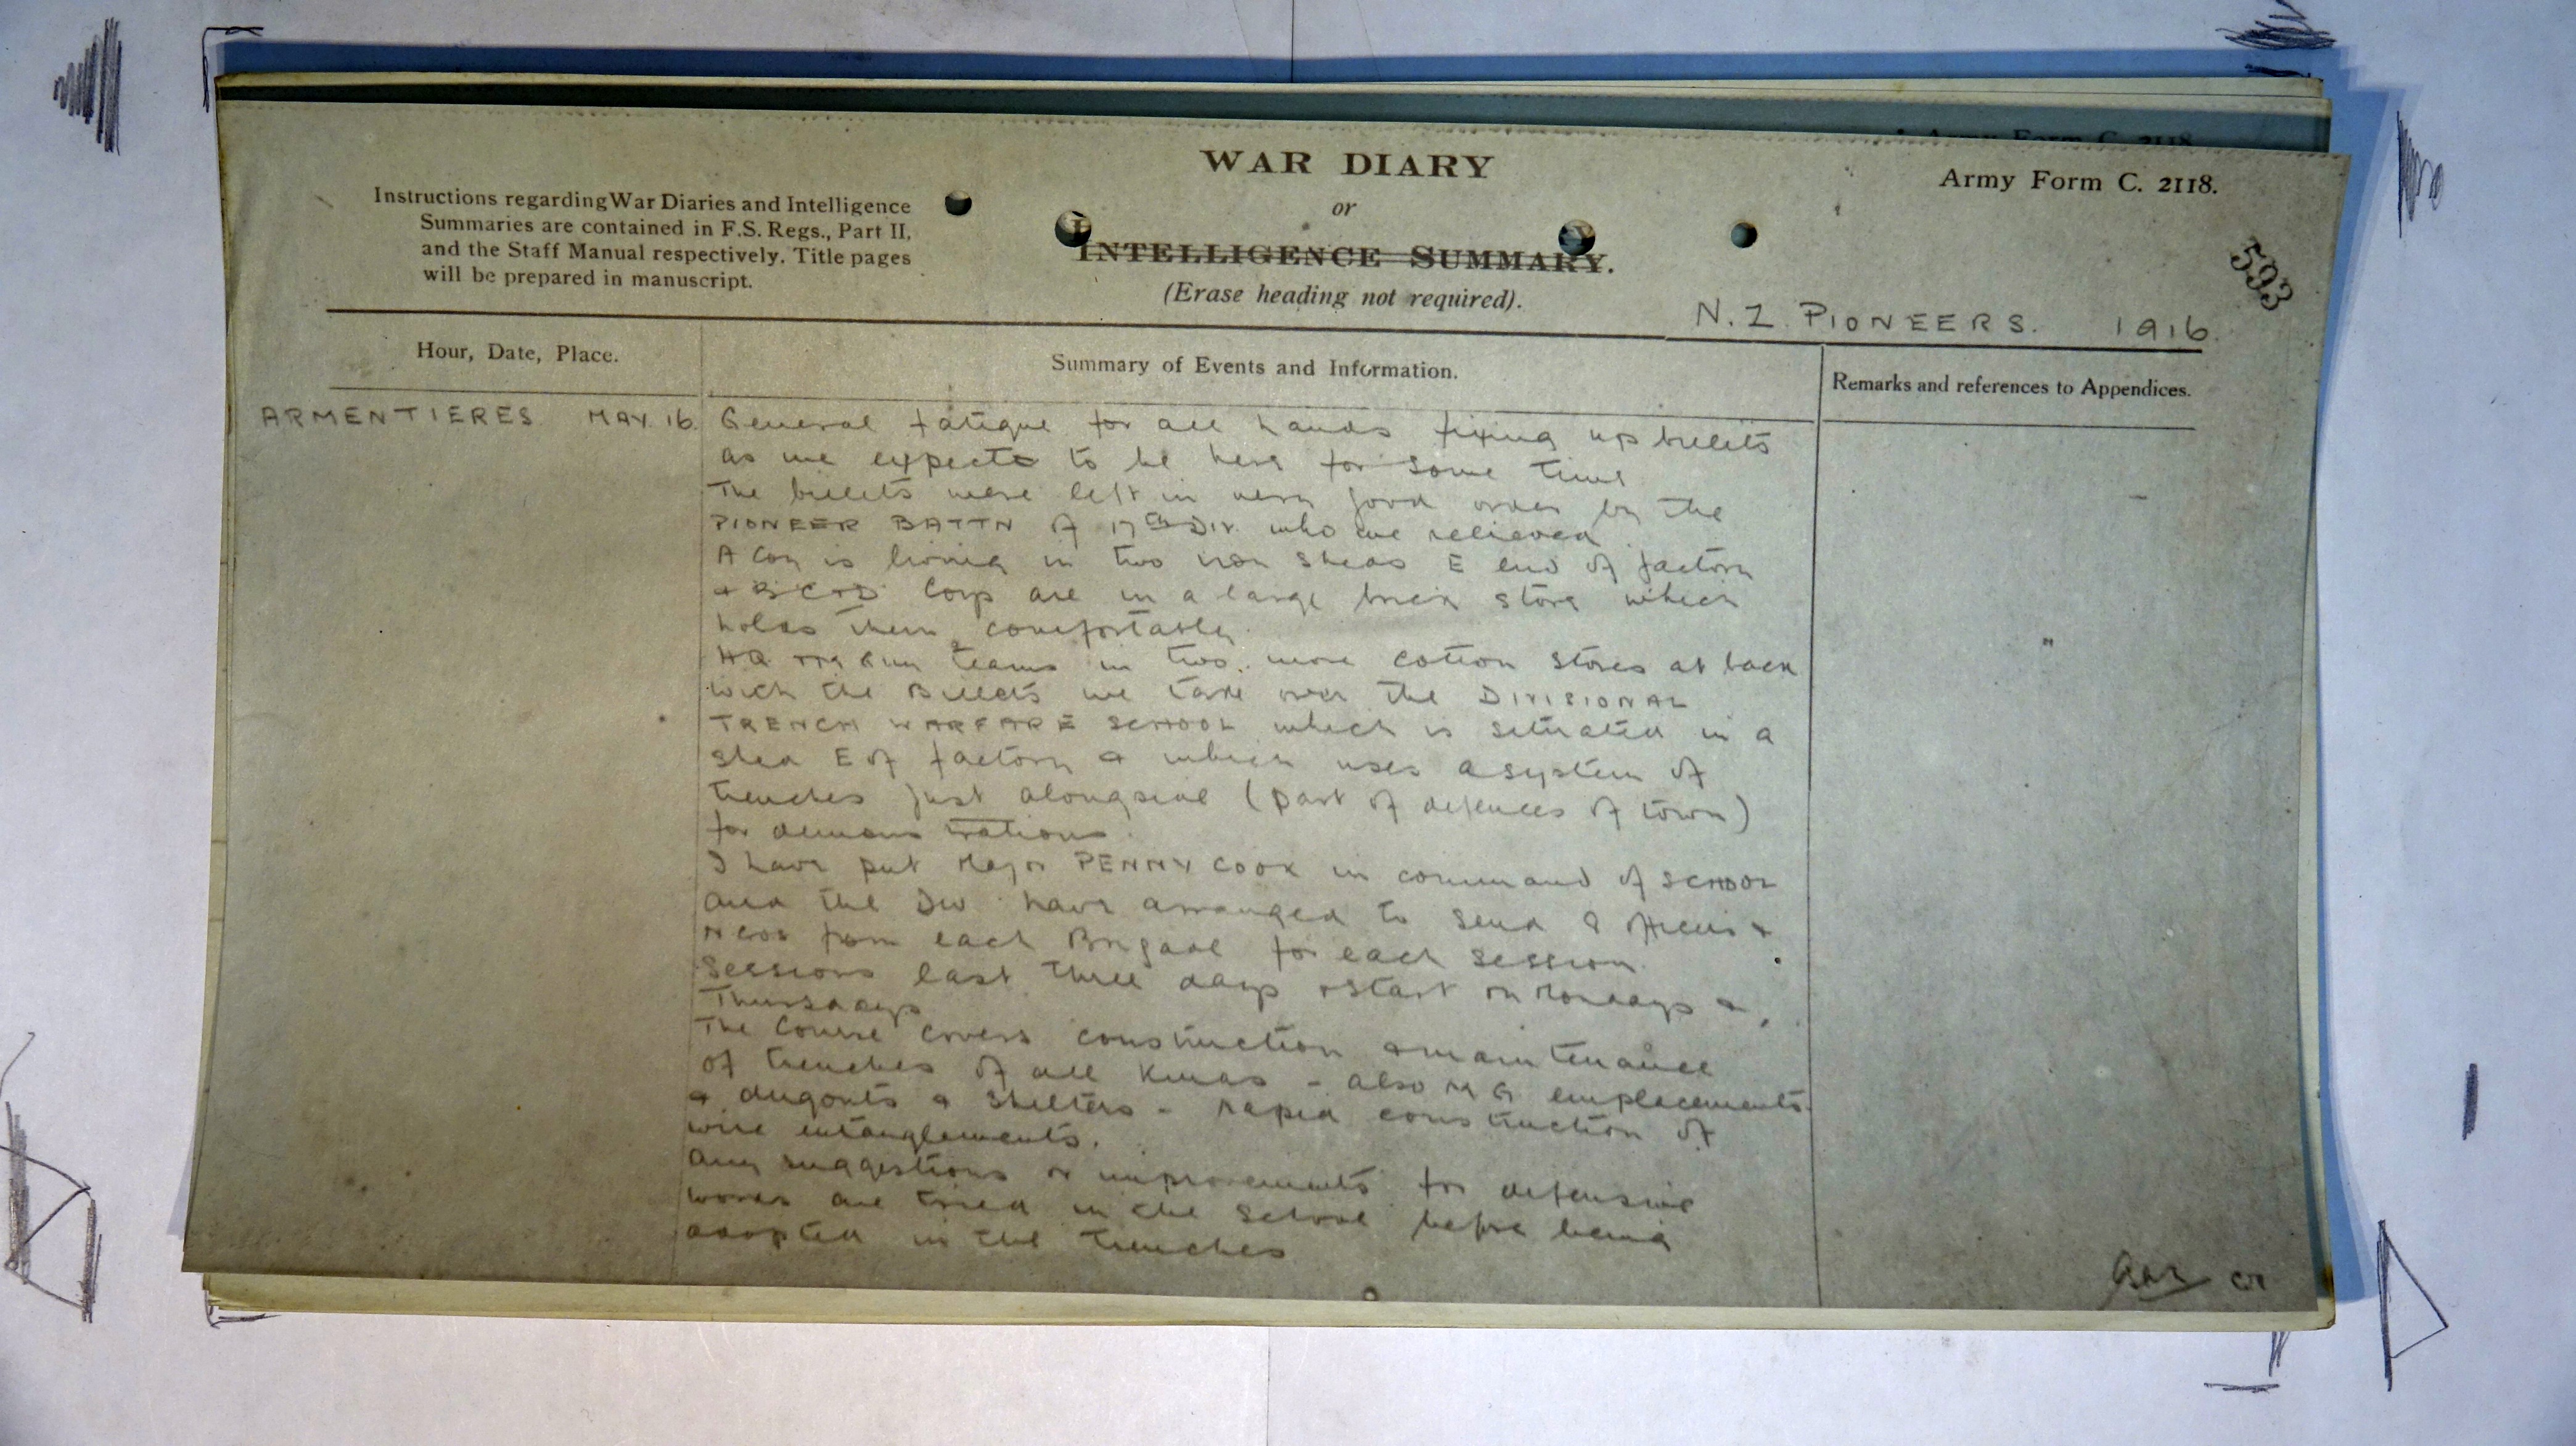 WAR DIARY
or
INTELLIGENCE SUMMARY.
(Erase heading not required).
Army Form C. 2118.
Army Form C. 2118
Instructions regarding War Diaries and Intelligence
Summaries are contained in F.S. Regs., Part II,
and the Staff Manual respectively. Title pages
will be prepared in manuscript.
593
N.Z PIONEERS. 1916.
Hour, Date, Place.
Summary of Events and Information.
Remarks and references to Appendices.
ARMENTIERES MAY. 16.
General fatigue for all hands fixing up billets
as we expect to be here for some time
The billets were left in very good order by the
PIONEER BATTN of 17th DIV. who we relieved
A Coy is living in two iron sheds E end of factory
+ B C + D Coys are in a large brick store which
holds them comfortably.
HQ + M Gun teams in two more cotton stores at back
With the Billets we take over the DIVISIONAL
TRENCH WARFARE SCHOOL which is situated in a
shed E of factory + which uses a system of
trenches just alongside (part of defences of town)
for demonstrations.
I have put Major PENNYCOOK in command of SCHOOL
and the Div. have arranged to send 8 officers +
NCOs from each Brigade for each session.
Sessions last three days + start on Mondays +
Thursdays
The Course covers construction + maintenance
of trenches of all kinds - also M G emplacements.
+ dugouts + shelters - rapid construction of
wire entanglements.
Any suggestions or improvements for defensive
works are tried in the school before being
adopted in the trenches